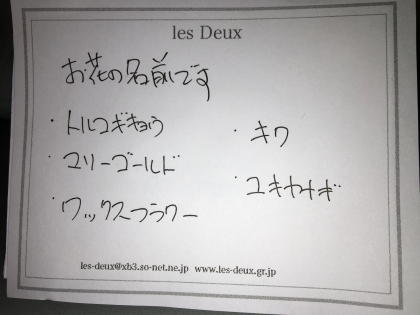 les Deux
お花の名前です
・トルコギキョウ
・マリーゴールド
・ワックスフラワー
・キク
・ユキヤナギ
les-deux@xb3.so-net.ne.jp www.les-deux.gr.jp